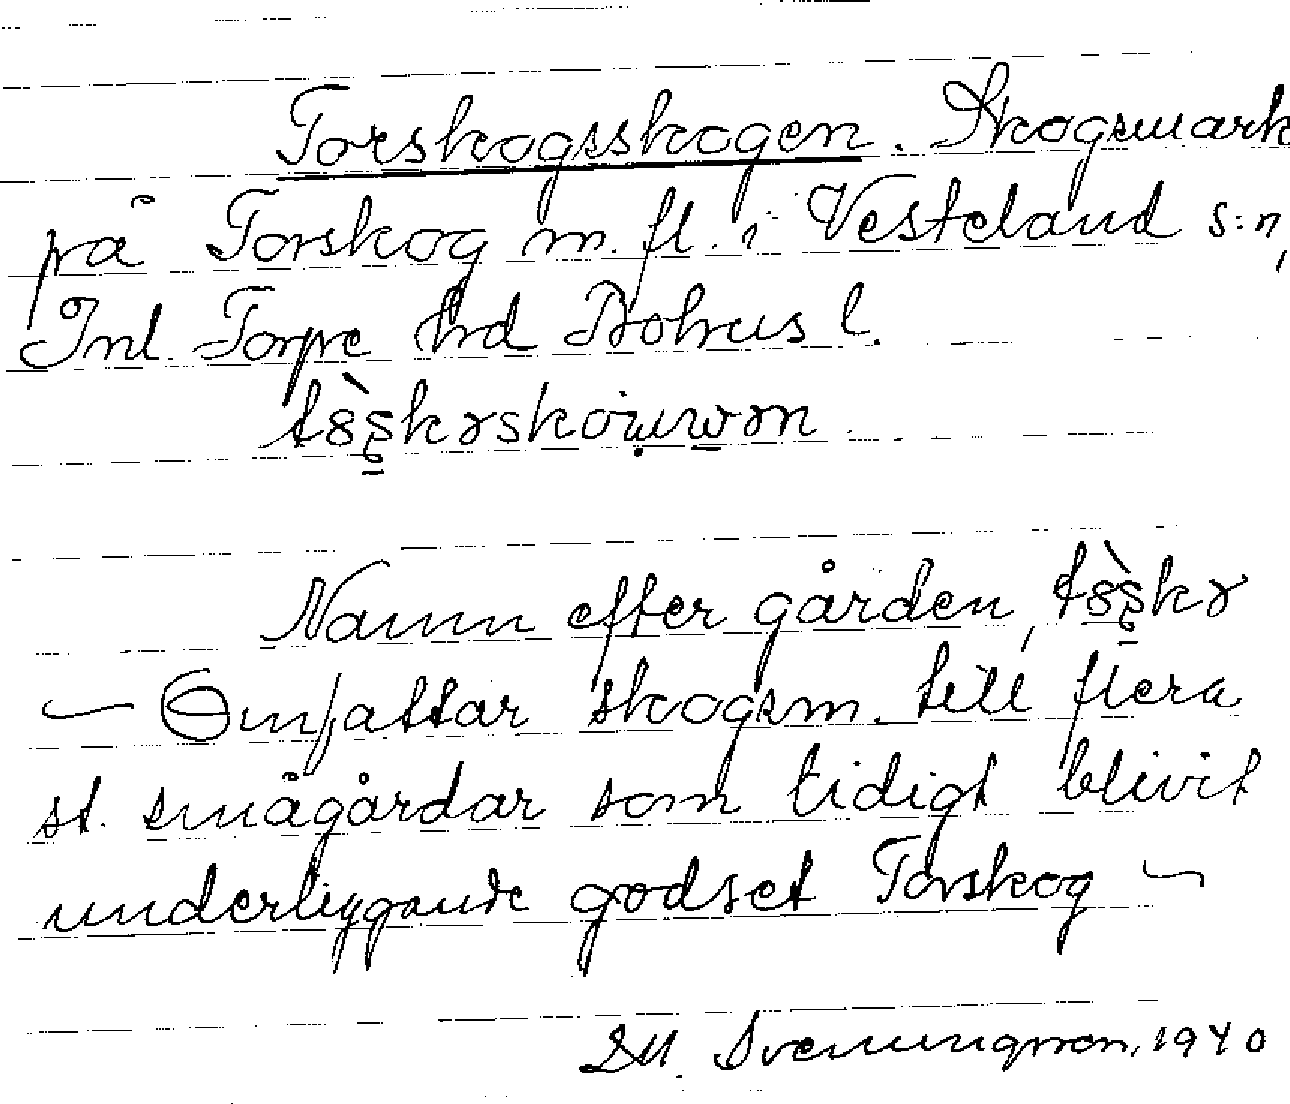 Torskogsskogen. Skogsmark
på Torskog m. fl. i Vesteland s:n,
Inl. Torpe hrd Bohus l.
Namn efter gården,
— Omfattar skogsm. till flera
st. smågårdar som tidigt blivit
underliggande godset Torskog —
Svenungsson, 1940